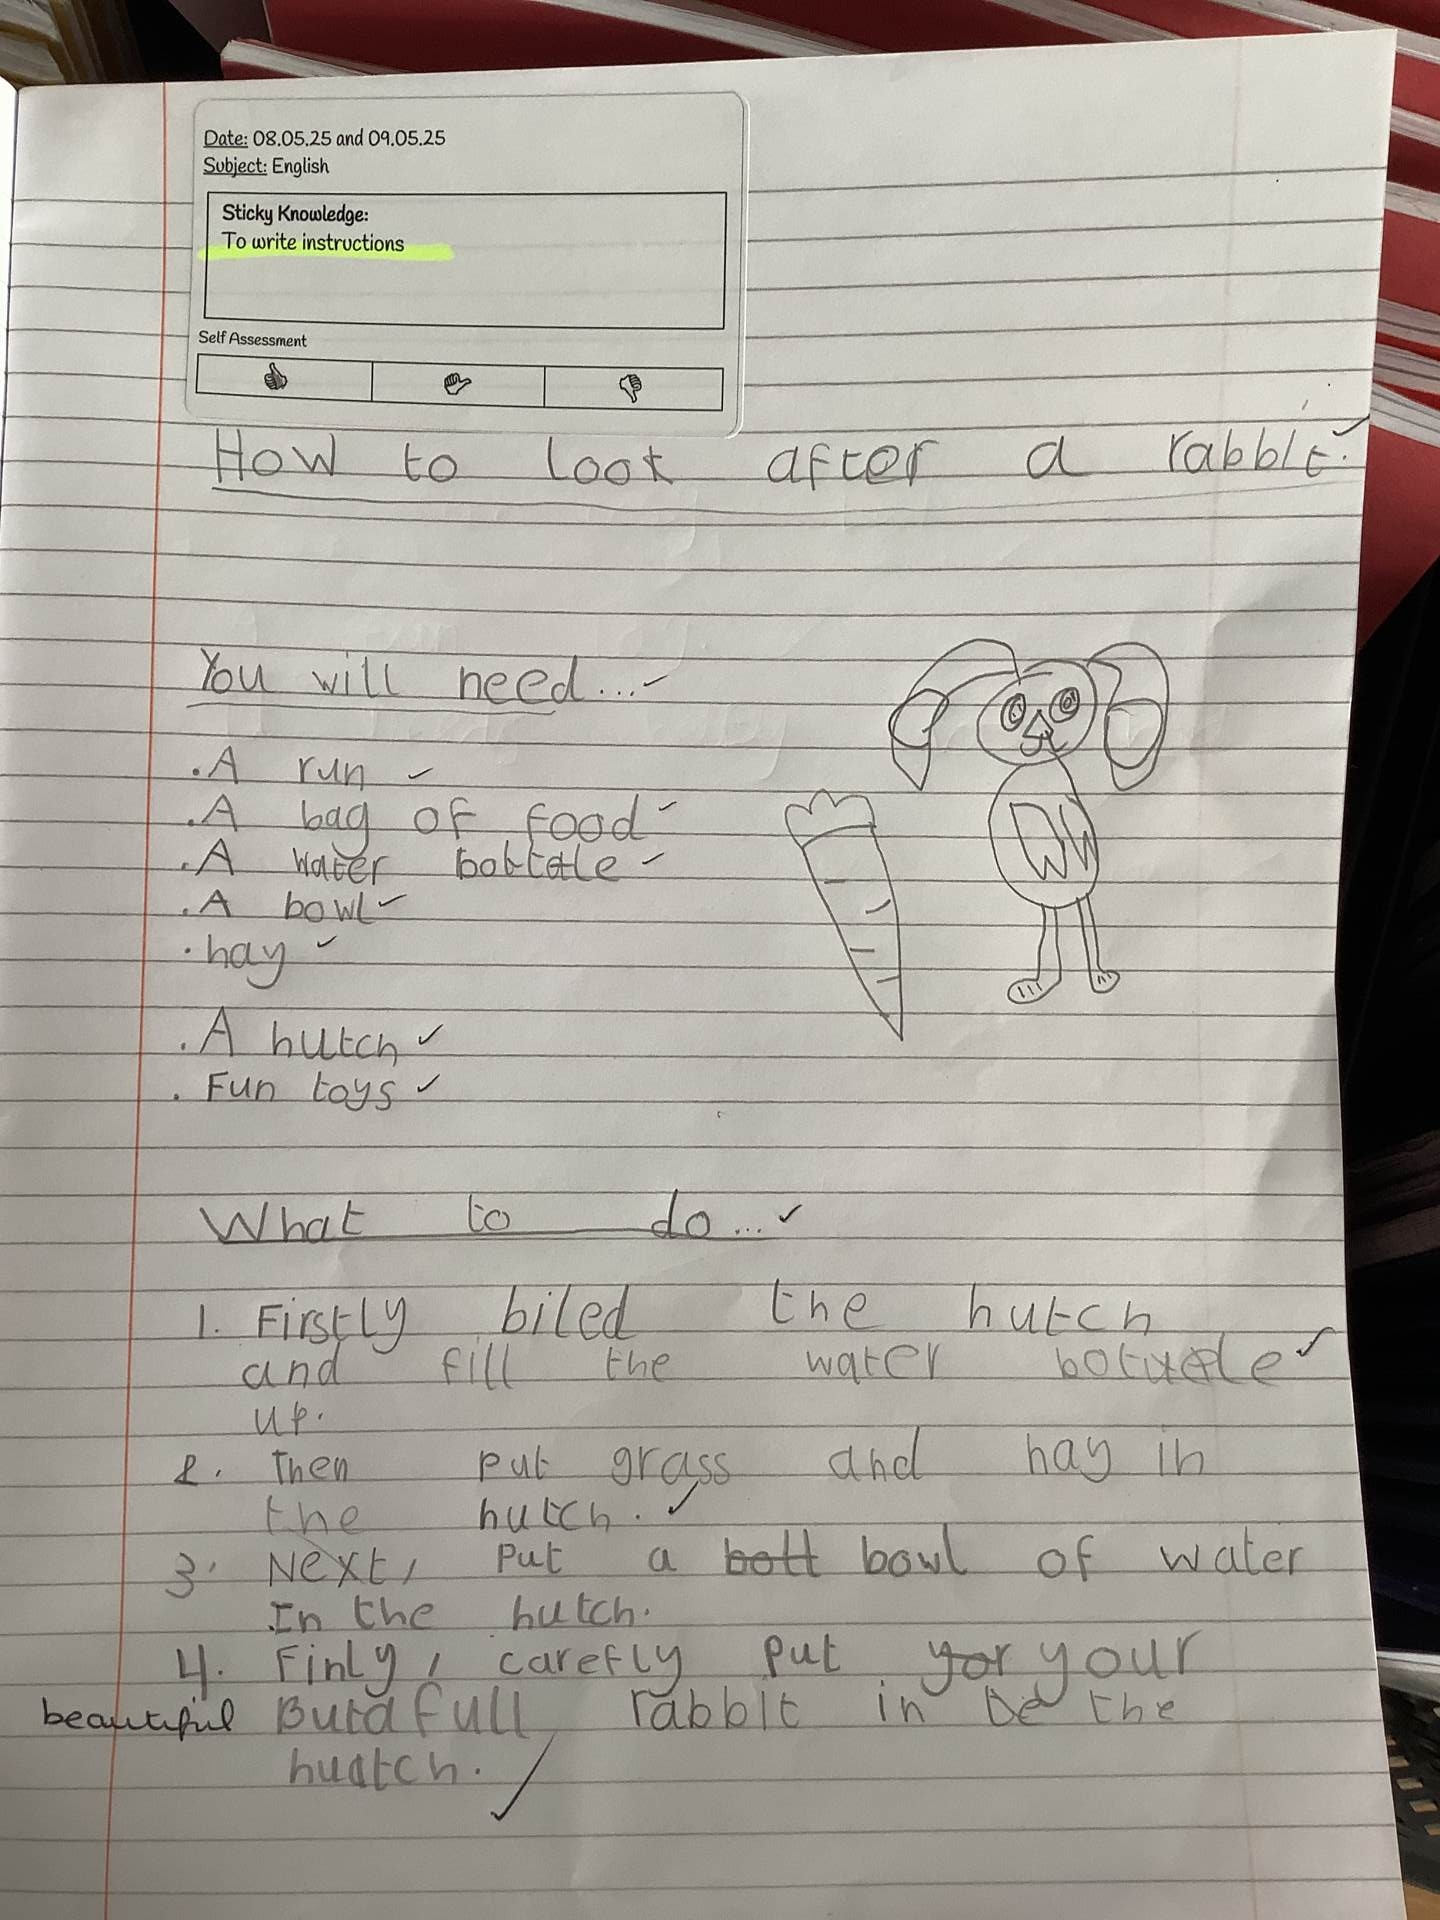 Date: 08.05.25 and 09.05.25
Subject: English
Sticky Knowledge:
To write instructions
Self Assessment
How to look after a rabbit.
You will need...
. A run
. A bag of food
. A water bottale
. A bowl
. hay
. A hutch
. Fun toys
What to do...
1. Firstly biled the hutch
and fill the water
up.
2. Then put grass and hay in
the hutch.
3. Next, put a bott bowl of water
In the hutch.
4. Finly, carefly put yor your
beautiful Butafull rabbit in the
huatch.